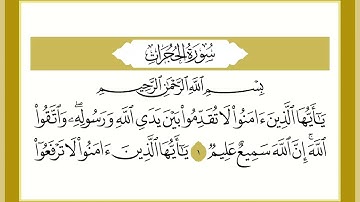 سُورَةُ الحُجُرَاتِ
بِسْمِ ٱللَّهِ ٱلرَّحْمَٰنِ ٱلرَّحِيمِ
يَٰٓأَيُّهَا ٱلَّذِينَ ءَامَنُوا۟ لَا تُقَدِّمُوا۟ بَيْنَ يَدَىِ ٱللَّهِ وَرَسُولِهِۦ ۖ وَٱتَّقُوا۟
ٱللَّهَ ۚ إِنَّ ٱللَّهَ سَمِيعٌ عَلِيمٌ ١ يَٰٓأَيُّهَا ٱلَّذِينَ ءَامَنُوا۟ لَا تَرْفَعُوٓا۟